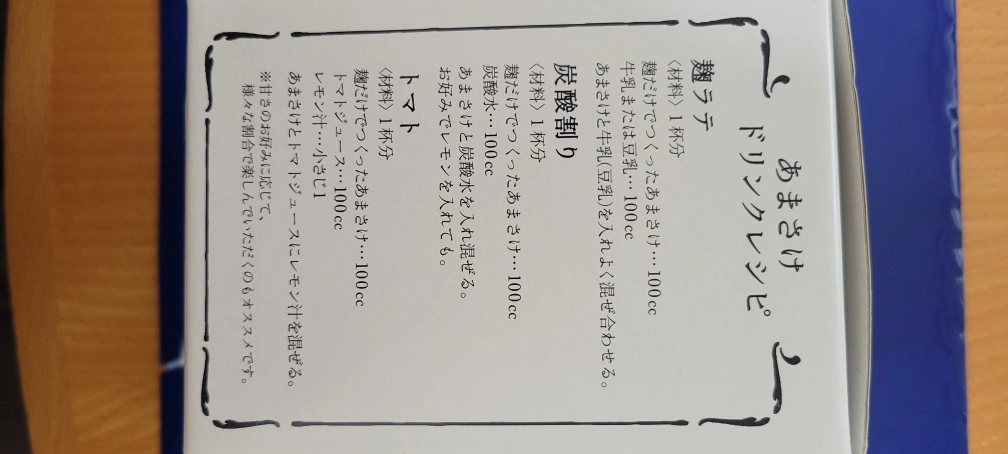 あまさけ
ドリンクレシピ
麹ラテ
〈材料〉1杯分
麹だけでつくったあまさけ…100cc
牛乳または豆乳…100cc
あまさけと牛乳(豆乳)を入れよく混ぜ合わせる。
炭酸割り
〈材料〉1杯分
麹だけでつくったあまさけ…100cc
炭酸水…100cc
あまさけと炭酸水を入れ混ぜる。
お好みでレモンを入れても。
トマト
〈材料〉1杯分
麹だけでつくったあまさけ…100cc
トマトジュース…100cc
レモン汁…小さじ1
あまさけとトマトジュースにレモン汁を混ぜる。
※甘さのお好みに応じて、
様々な割合で楽しんでいただくのもオススメです。